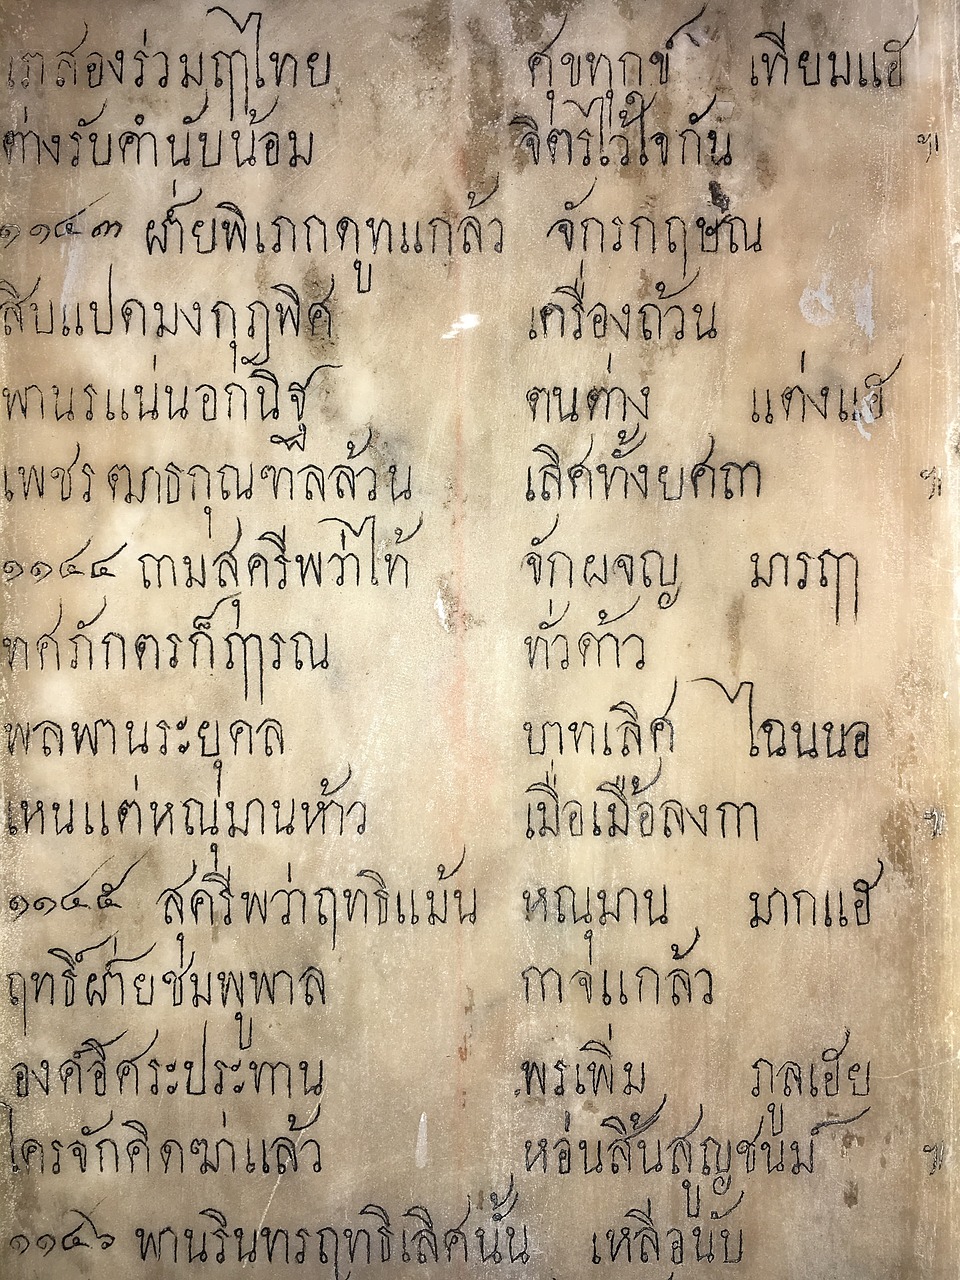 เราสองร่วมฤๅไทย ศุขทุกข์ เทียมแฮ
ต่างรับคำนับน้อม จิตรไว้ใจกัน ฯ
๑๑๔๓ ฝ่ายพิเภกดูทแกล้ว จักรกฤษณ
สิบแปดมงกุฎพิศ เครื่องถ้วน
พานรแน่นอกนิฐ ตนต่าง แต่งแฮ
เพชรฆาธกุณฑลล้วน เลิศทั้งยศถา ฯ
๑๑๔๔ ถามสุครีพว่าไท้ จักผจญ มารฤๅ
ทศภักตรก็ฦๅรณ ทั่วด้าว
พลพานระยุคล บาทเลิศ ไฉนนอ
เหนแต่หณุมานห้าว เมื่อเมื้อลงกา ฯ
๑๑๔๕ สุครีพว่าฤทธิแม้น หณุมาน มากแฮ
ฤทธิ์ฝ่ายชมพูพาล กาจแกล้ว
องค์อิศระประทาน พรเพิ่ม ภูลเฮย
ใครจักคิดฆ่าแล้ว ห่อนสิ้นสูญชนม์ ฯ
๑๑๔๖ พานรินทรฤทธิเลิศนั้น เหลือนับ